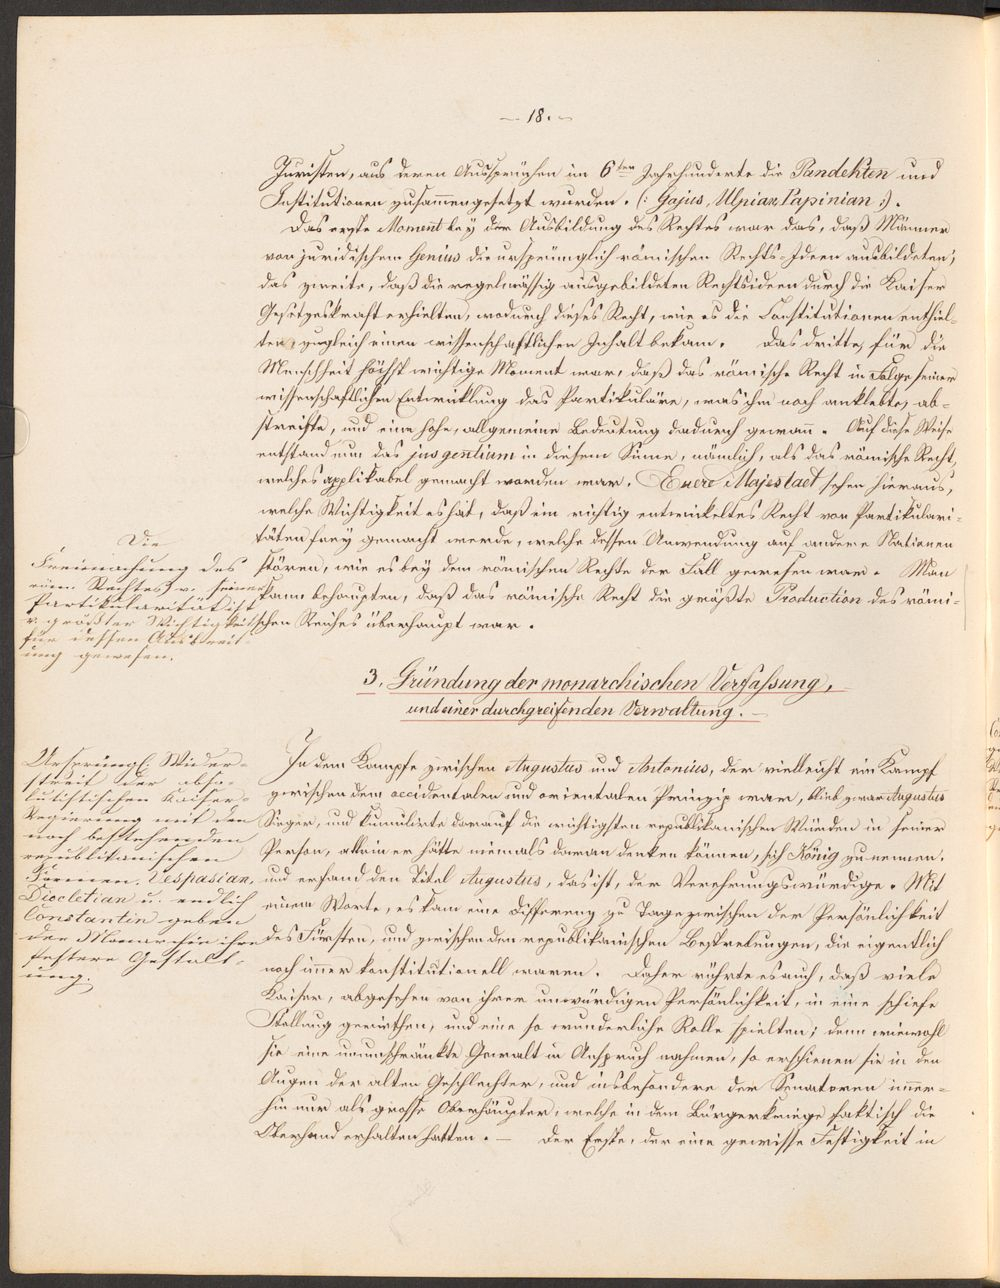 — 18. —
Juristen, aus deren Aussprüchen im 6ten Jahrhunderte die Pandekten und
Institutionen zusammengesetzt wurden. (: Gajus, Ulpian Papinian :).
Das erste Moment bey der Ausbildung des Rechtes war das, daß Männer
von juridischem Genius die ursprünglich römischen Rechts-Ideen ausbildeten;
das zweite, daß die regelmässig ausgebildeten Rechtsideen durch die Kaiser
Gesetzeskraft erhielten, wodurch dieses Recht, wie es die Constitutionen enthiel-
ten, zugleich einen wissenschaftlichen Inhalt bekam. Das dritte, für die
Menschheit höchst wichtige Moment war, daß das römische Recht in Folge seiner
wissenschaftlichen Entwicklung das Partikuläre, was ihm noch anklebte, ab-
streifte, und eine hohe, allgemeine Bedeutung dadurch gewann. Auf diese Weise
entstand nun das jus gentium in diesem Sinne, nämlich, als das römische Recht,
welches applikabel gemacht worden war. Euere Majestaet sehen hieraus,
welche Wichtigkeit es hat, daß ein richtig entwickeltes Recht von Partikulari-
täten frey gemacht werde, welche dessen Anwendung auf andere Nationen
stören, wie es bey dem römischen Rechte der Fall gewesen war. Man
kann behaupten, daß das römische Recht die größte Production des römi-
schen Reiches überhaupt war.
Die
Freimachung des
röm. Rechtes v. seiner
Partikularität ist
v. größter Wichtigkeit
für dessen Ausbreit-
ung gewesen.
3. Gründung der monarchischen Verfassung,
und einer durchgreifenden Verwaltung. —
Ursprüngl. Wider-
streit der abso-
lutistischen Kaiser-
Regierung mit den
noch bestehenden
republikanischen
Formen. Vespasian,
Diocletian u. endlich
Constantin geben
der Monarchie ihre
festere Gestalt-
ung.
In dem Kampfe zwischen Augustus und Antonius, der vielleicht ein Kampf
zwischen dem occidentalen und orientalen Prinzip war, blieb zwar Augustus
Sieger, und kumulirte darauf die wichtigsten republikanischen Würden in seiner
Person, allein er hätte niemals daran denken können, sich König zu nennen,
und erfand den Titel Augustus, das ist, der Verehrungswürdige. Mit
einem Worte, es kam eine Differenz zu Tage zwischen der Persönlichkeit
des Fürsten, und zwischen den republikanischen Bestrebungen, die eigentlich
noch immer konstitutionell waren. Daher rührte es auch, daß viele
Kaiser, abgesehen von ihrer unwürdigen Persönlichkeit, in eine schiefe
Stellung geriethen, und eine so wunderliche Rolle spielten; denn wiewohl
sie eine unumschränkte Gewalt in Anspruch nahmen, so erschienen sie in den
Augen der alten Geschlechter, und insbesondere der Senatoren immer-
hin nur als grosse Oberhäupter, welche in dem Bürgerkriege faktisch die
Oberhand erhalten hatten. — Der Erste, der eine gewisse Festigkeit in